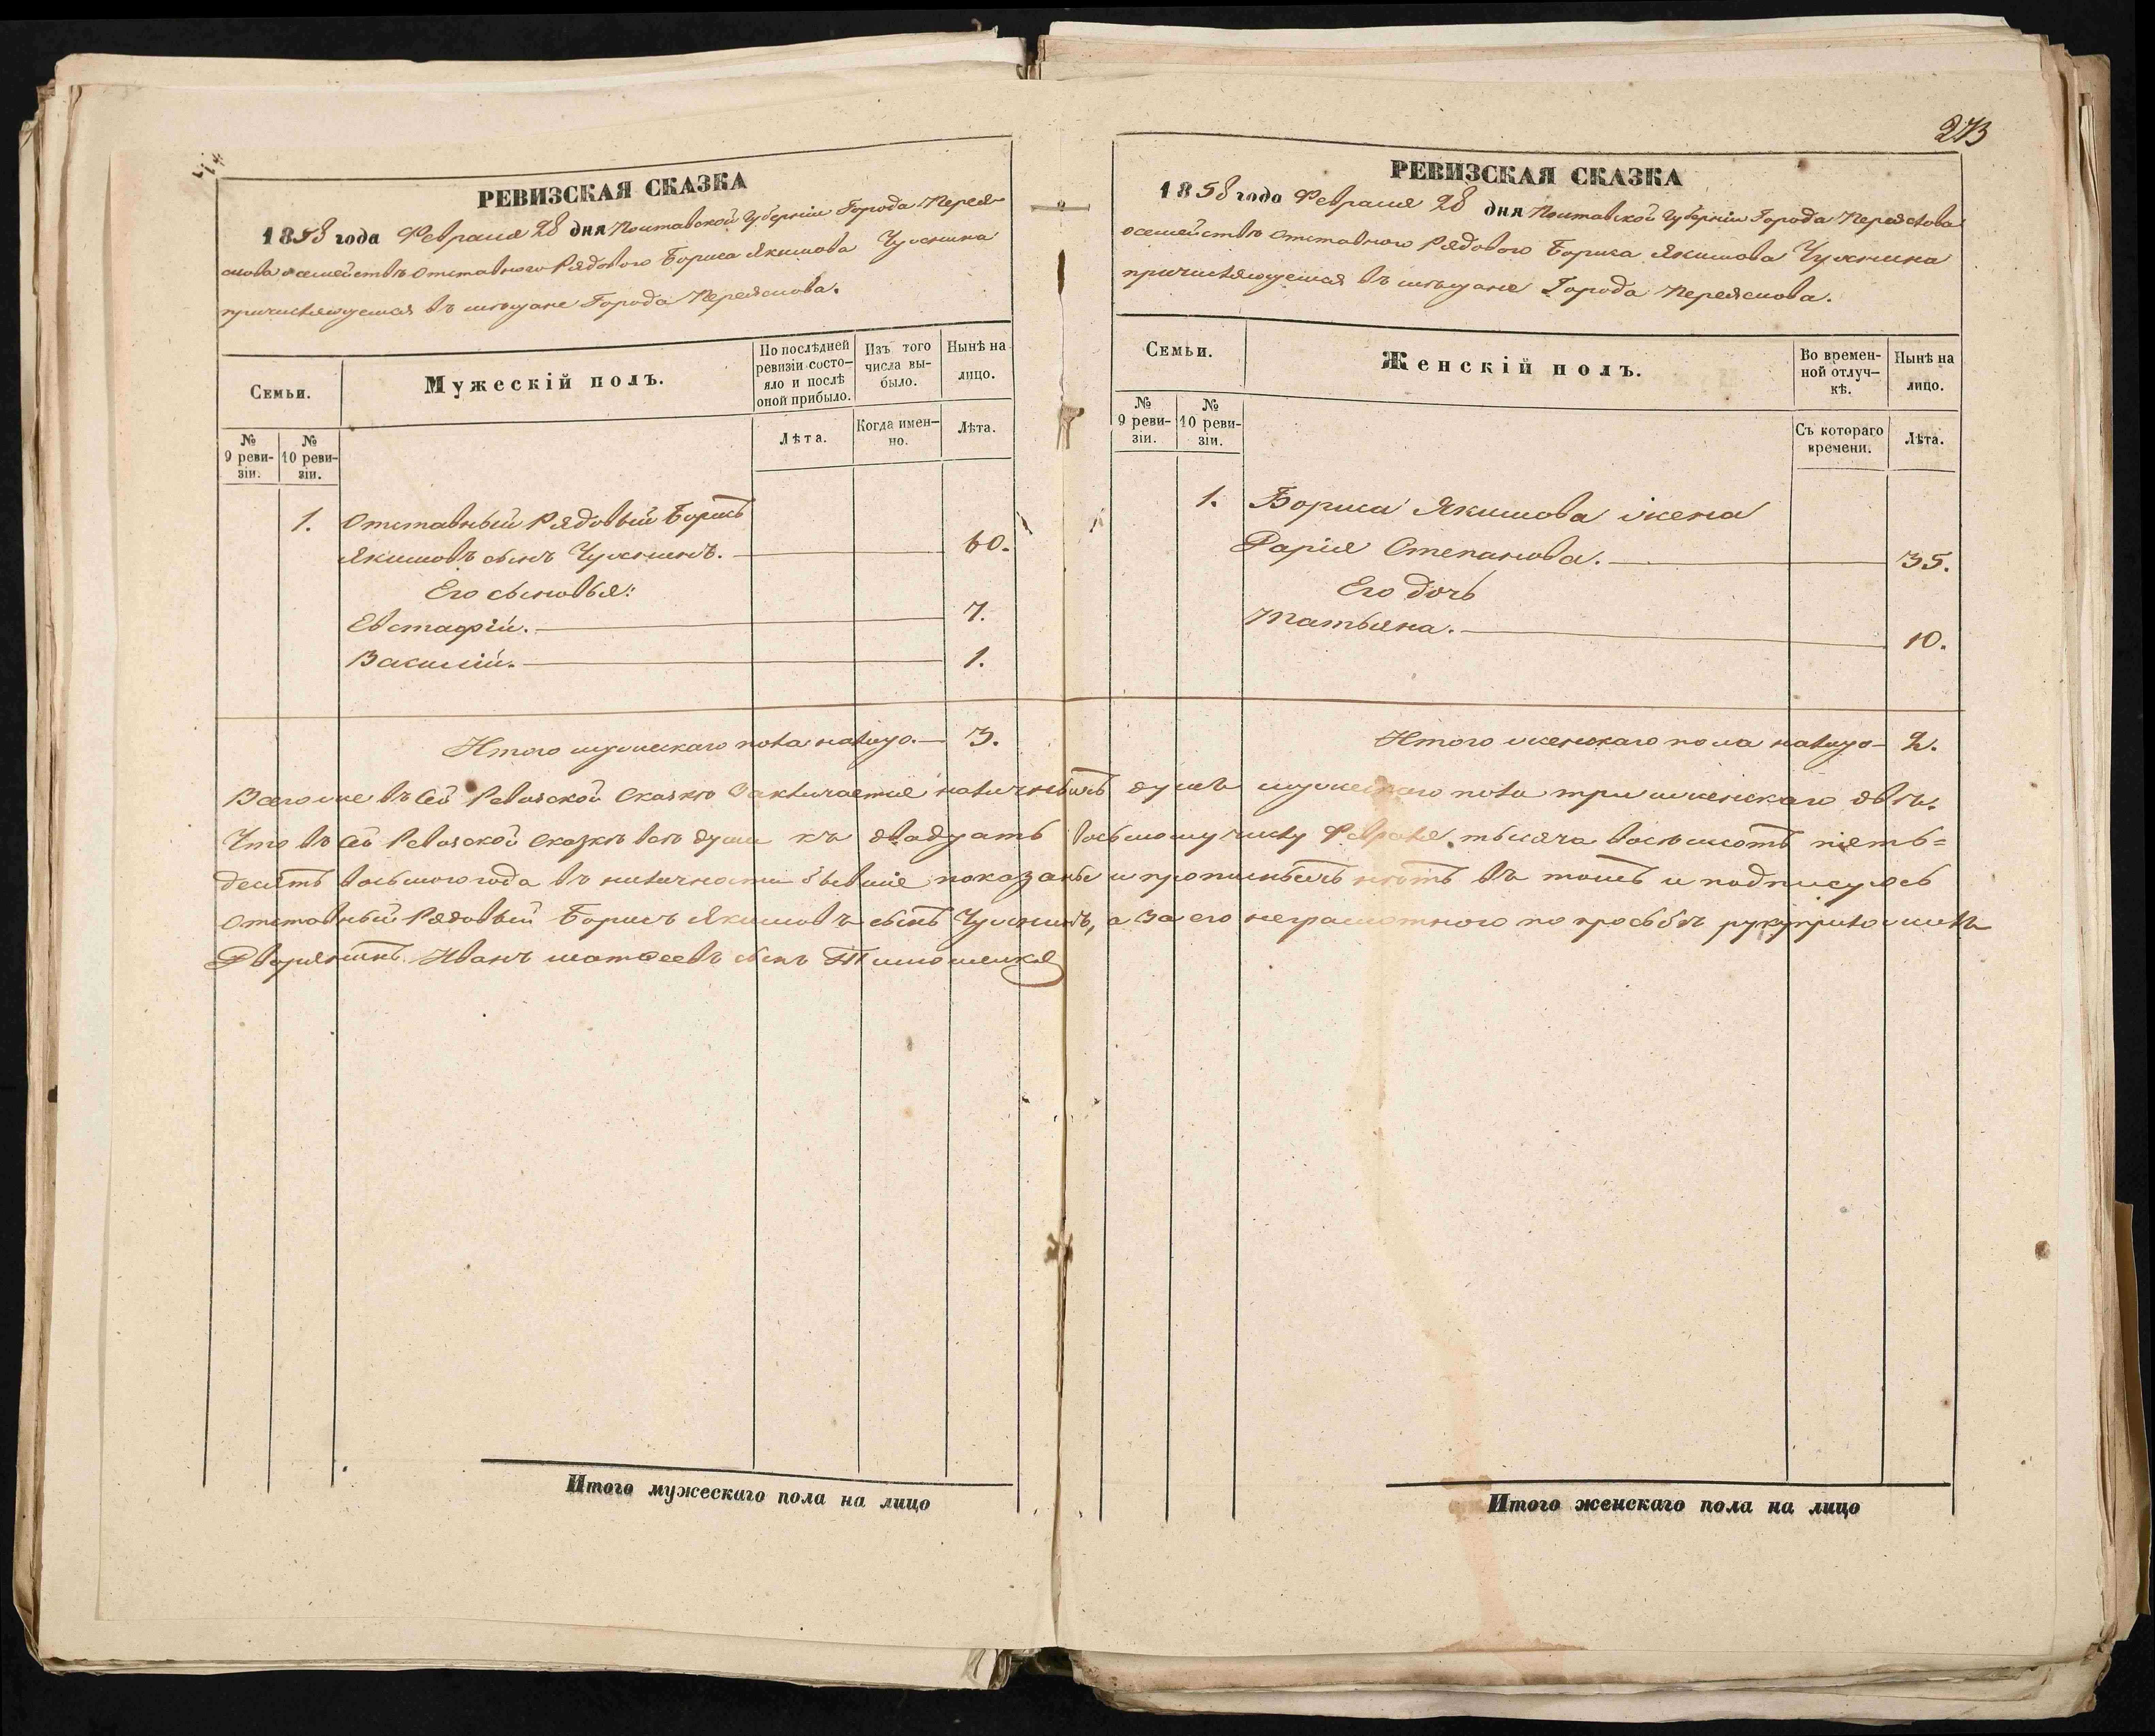 РЕВИЗСКАЯ СКАЗКА
1858 года Февраля 28 дня Полтавской Губерніи Города Перея-
слова о семействѣ отставного Рядового Бориса Якимова
причисляющемся въ мѣщане Города Переяслова.
Семьи.
Мужескій полъ.
По послѣдней ревизіи состо-
яло и послѣ оной прибыло.
Изъ того числа вы-
было.
Нынѣ на лицо.
№ 9 реви-
зіи.
№ 10 реви-
зіи.
Лѣта.
Когда имен-
но.
Лѣта.
1. Отставный Рядовый Борисъ
Якимовъ сынъ 60.
Его сыновья:
Евстафій. 7.
Василій. 1.
Итого мужескаго пола налицо. 3.
273
РЕВИЗСКАЯ СКАЗКА
1858 года Февраля 28 дня Полтавской Губерніи Города Переяслова
о семействѣ отставного Рядового Бориса Якимова
причисляющемся въ мѣщане Города Переяслова.
Семьи.
Женскій полъ.
Во времен-
ной отлуч-
кѣ.
Нынѣ на лицо.
№ 9 реви-
зіи.
№ 10 реви-
зіи.
Съ котораго времени.
Лѣта.
1. Бориса Якимова жена
Дарія Степанова. 35.
Его дочь
Татьяна. 10.
Итого женскаго пола налицо 2.
Всего же въ сей Ревизской Сказкѣ заключается наличныхъ душъ мужескаго пола три женскаго двѣ.
Что въ сей Ревизской сказкѣ всѣ души къ двадцать восьмому числу Февраля тысяча восемьсотъ пять=
десятъ восьмого года въ наличности бывшіе показаны и прописныхъ нѣтъ въ томъ и подписуюсь
отставный Рядовый Борисъ Якимовъ сынъ а за его неграмотного по просьбѣ руку приложилъ
Дворянинъ Иванъ Матфеевъ сынъ
Итого мужескаго пола на лицо
Итого женскаго пола на лицо